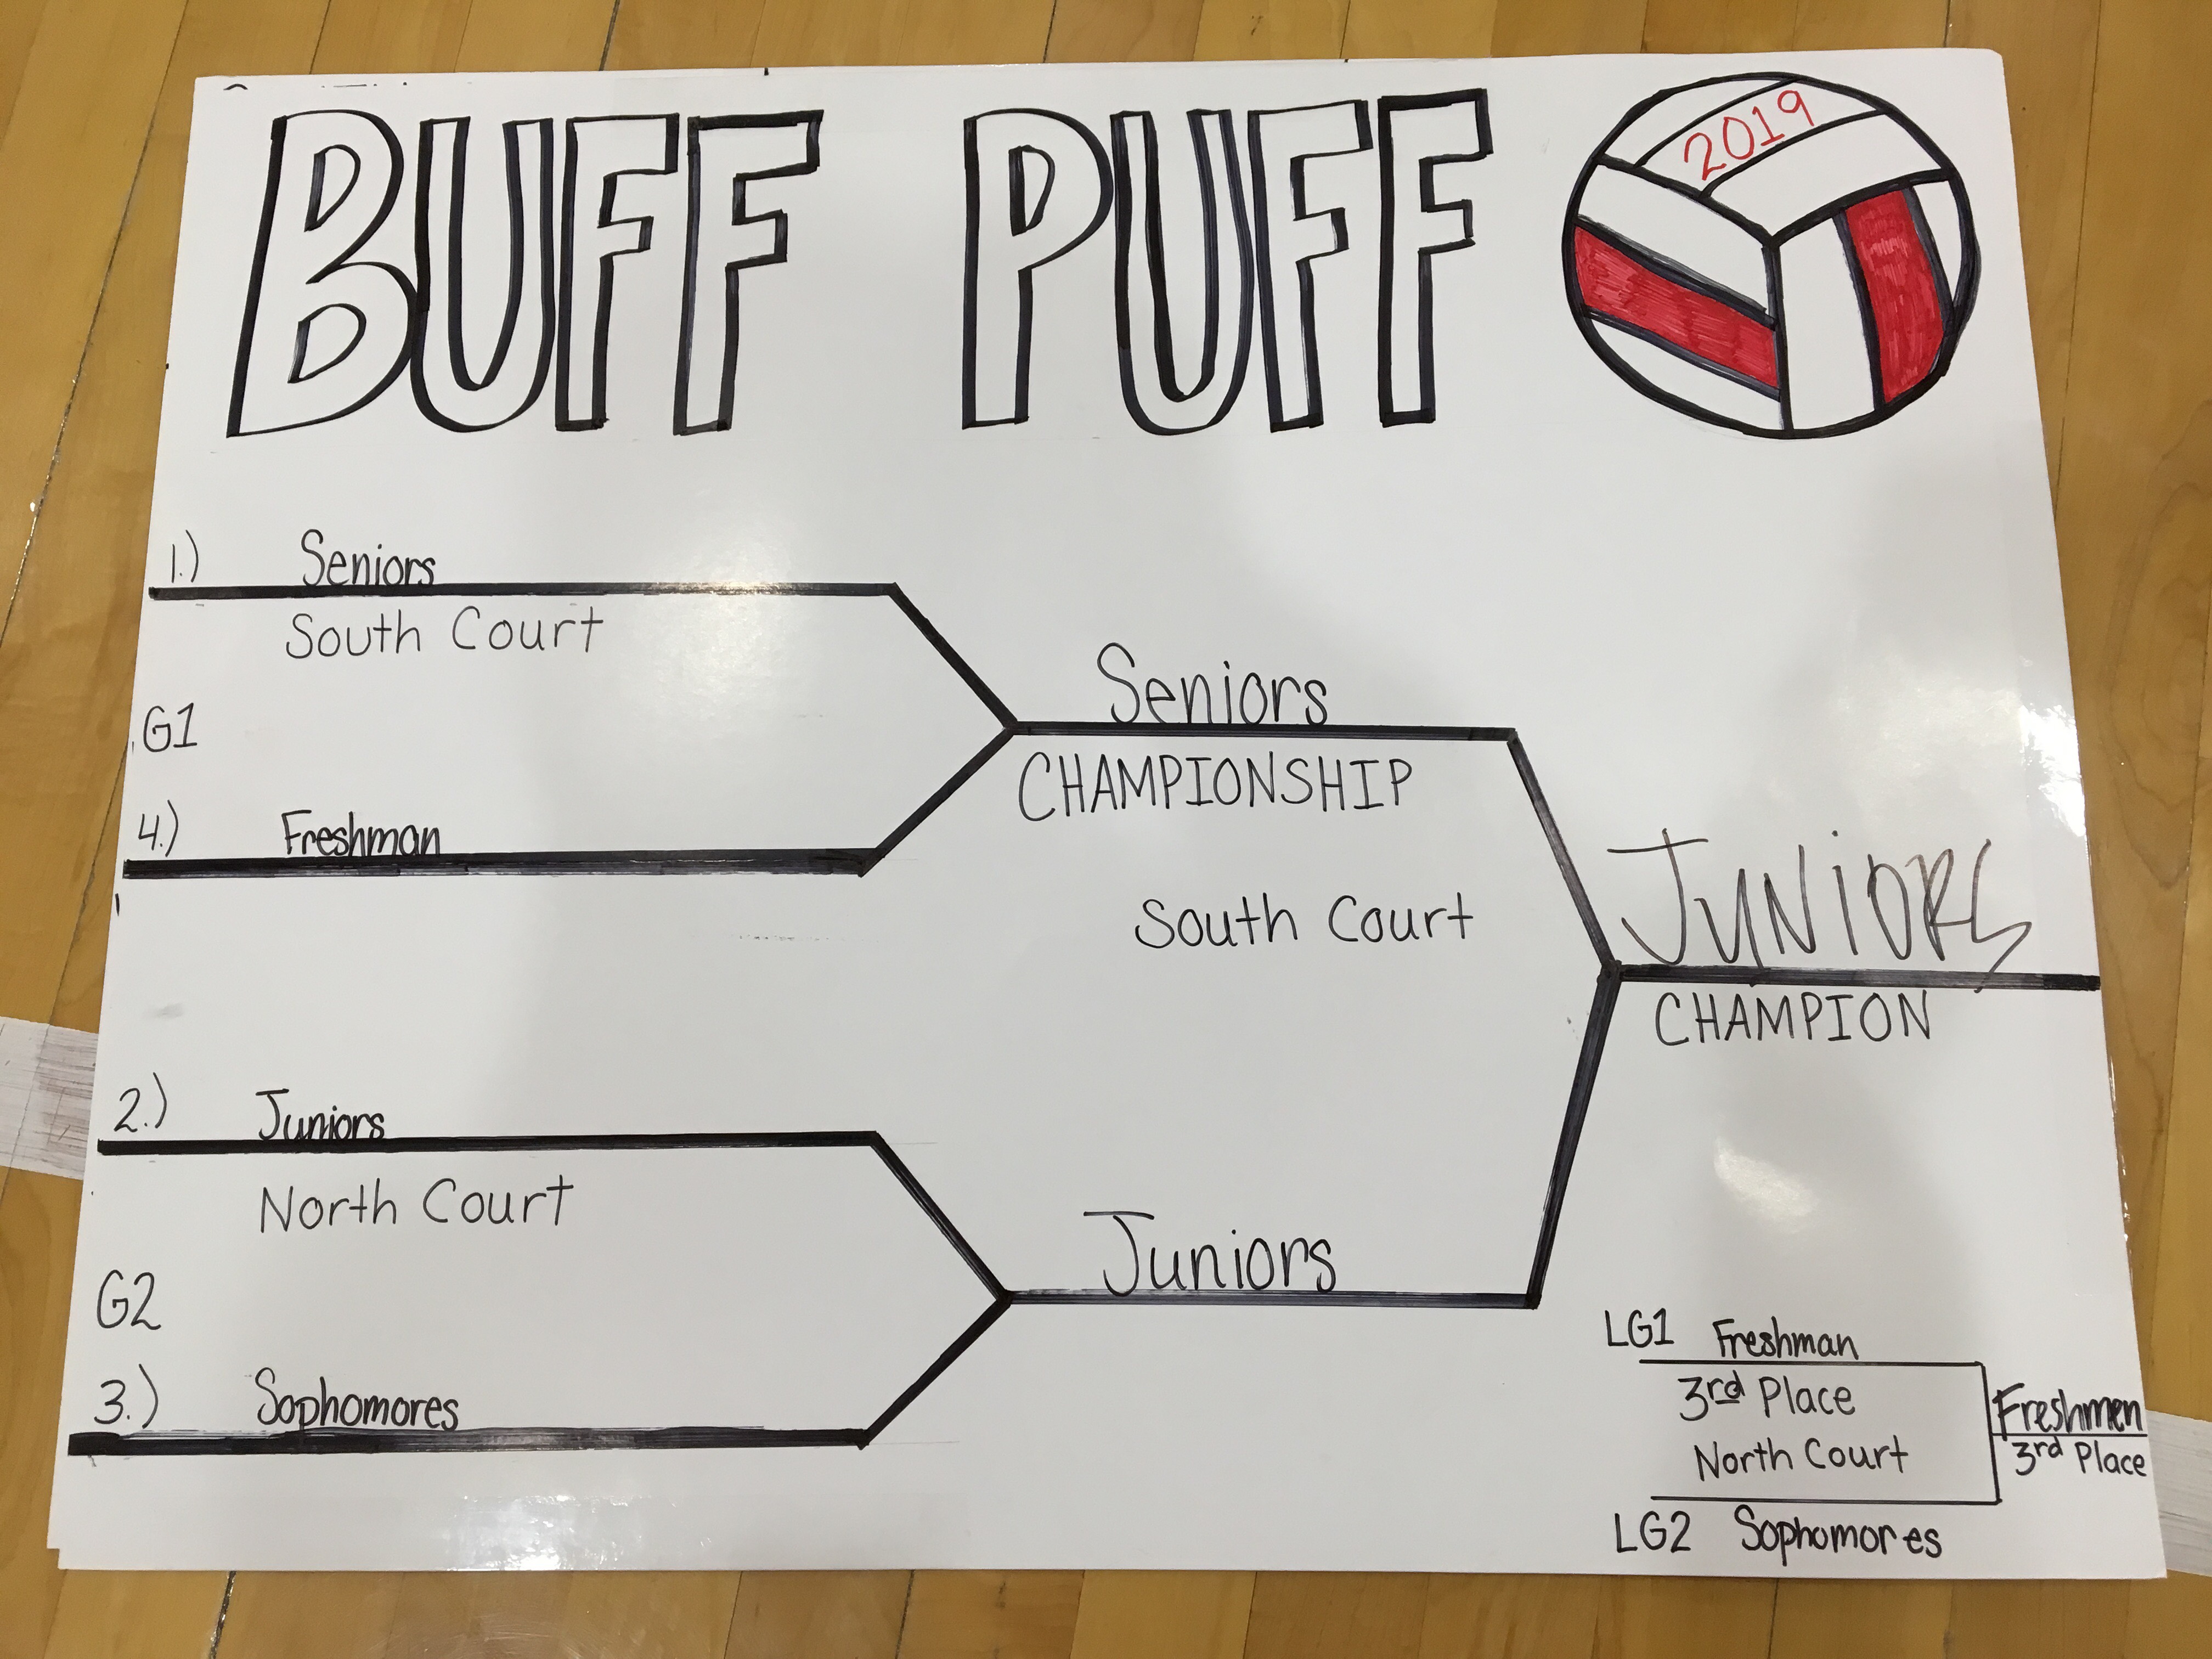 BUFF PUFF
2019
1.) Seniors
South Court
G1
4.) Freshman
Seniors
CHAMPIONSHIP
South Court
JUNIORS
CHAMPION
2.) Juniors
North Court
G2
3.) Sophomores
Juniors
LG1 Freshman
3rd Place
North Court
LG2 Sophomores
Freshmen
3rd Place